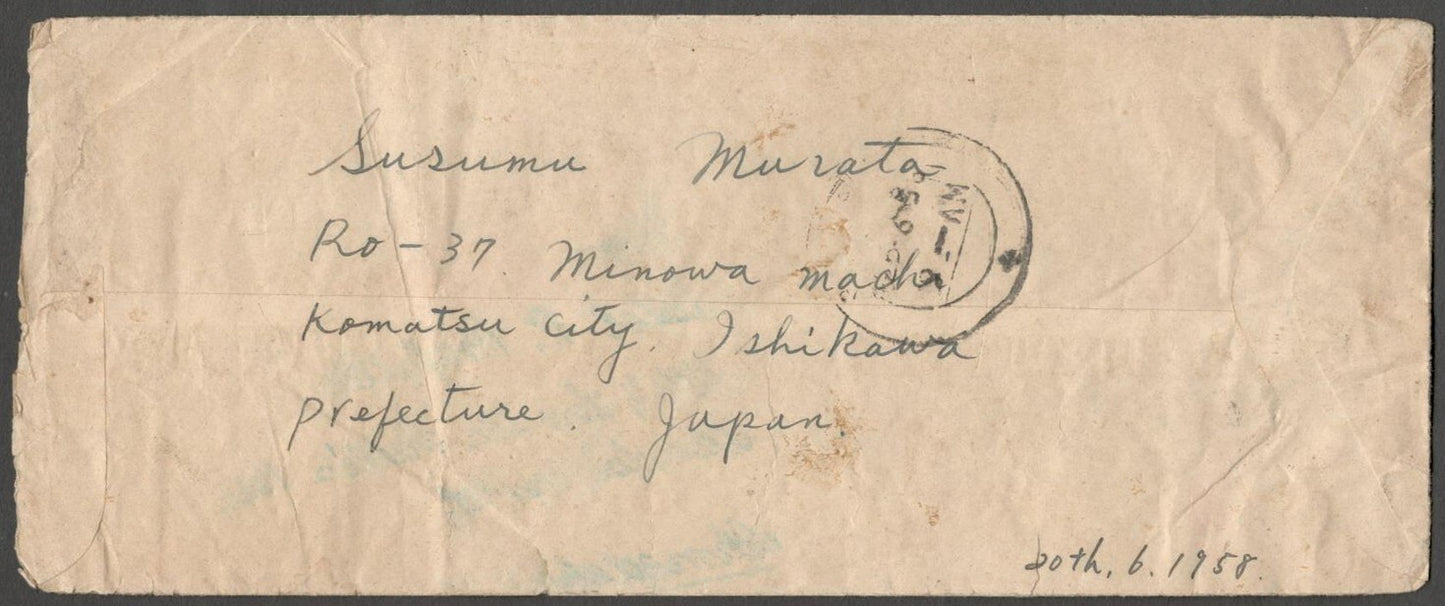 Susumu Murata
Ro-37. Minowa machi
Komatsu city. Ishikawa
prefecture. Japan.
20th, 6. 1958.